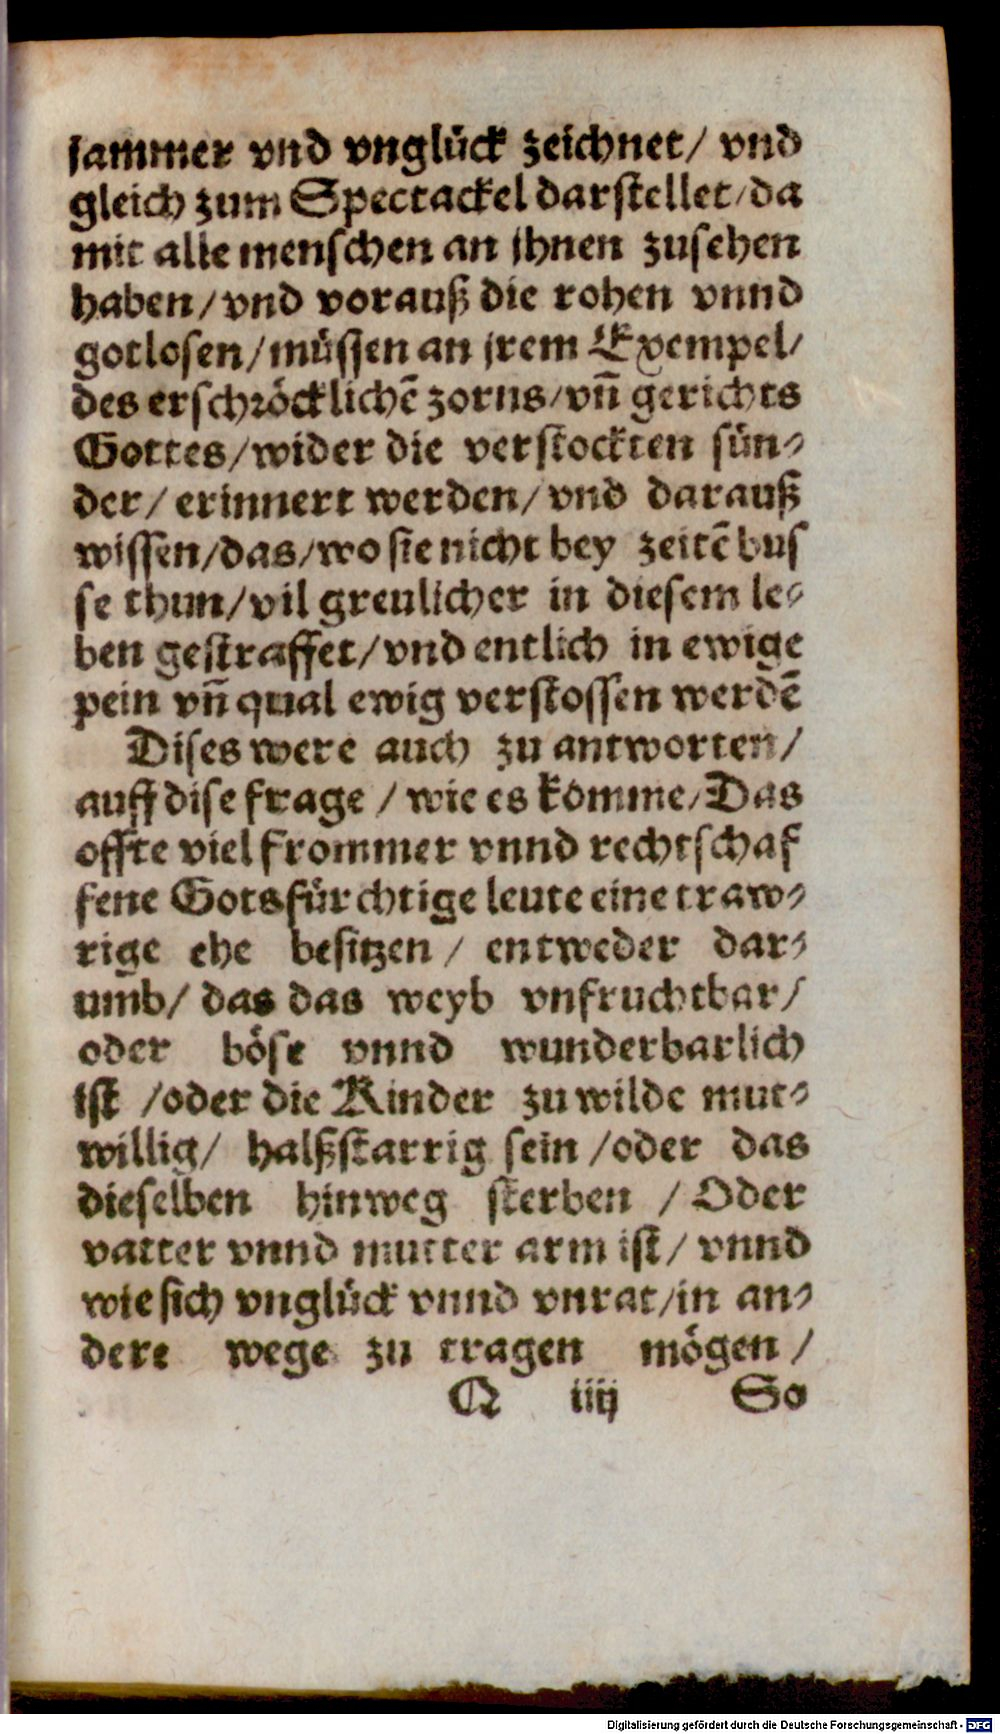 jammer vnd vnglück zeichnet/ vnd
gleich zum Spectackel darstellet/da
mit alle menschen an jhnen zusehen
haben/vnd vorauß die rohen vnnd
gotlosen/müssen an jrem Exempel/
des erschröcklichē zorns/vñ gerichts
Gottes/wider die verstockten sün⸗
der/ erinnert werden/ vnd darauß
wissen/das/wo sie nicht bey zeitē bus
se thun/vil greulicher in diesem le⸗
ben gestraffet/vnd entlich in ewige
pein vñ qual ewig verstossen werdē
Dises were auch zu antworten/
auff dise frage / wie es komme/Das
offte viel frommer vnnd rechtschaf
fene Gotsfürchtige leute eine traw⸗
rige ehe besitzen/ entweder dar⸗
umb/ das das weyb vnfruchtbar/
oder böse vnnd wunderbarlich
ist /oder die Kinder zu wilde mut⸗
willig/ halßstarrig sein /oder das
dieselben hinweg sterben / Oder
vatter vnnd mutter arm ist/ vnnd
wie sich vnglück vnnd vnrat/in an⸗
dere wege zu tragen mögen /
Q iiij So
Digitalisierung gefördert durch die Deutsche Forschungsgemeinschaft - DFG